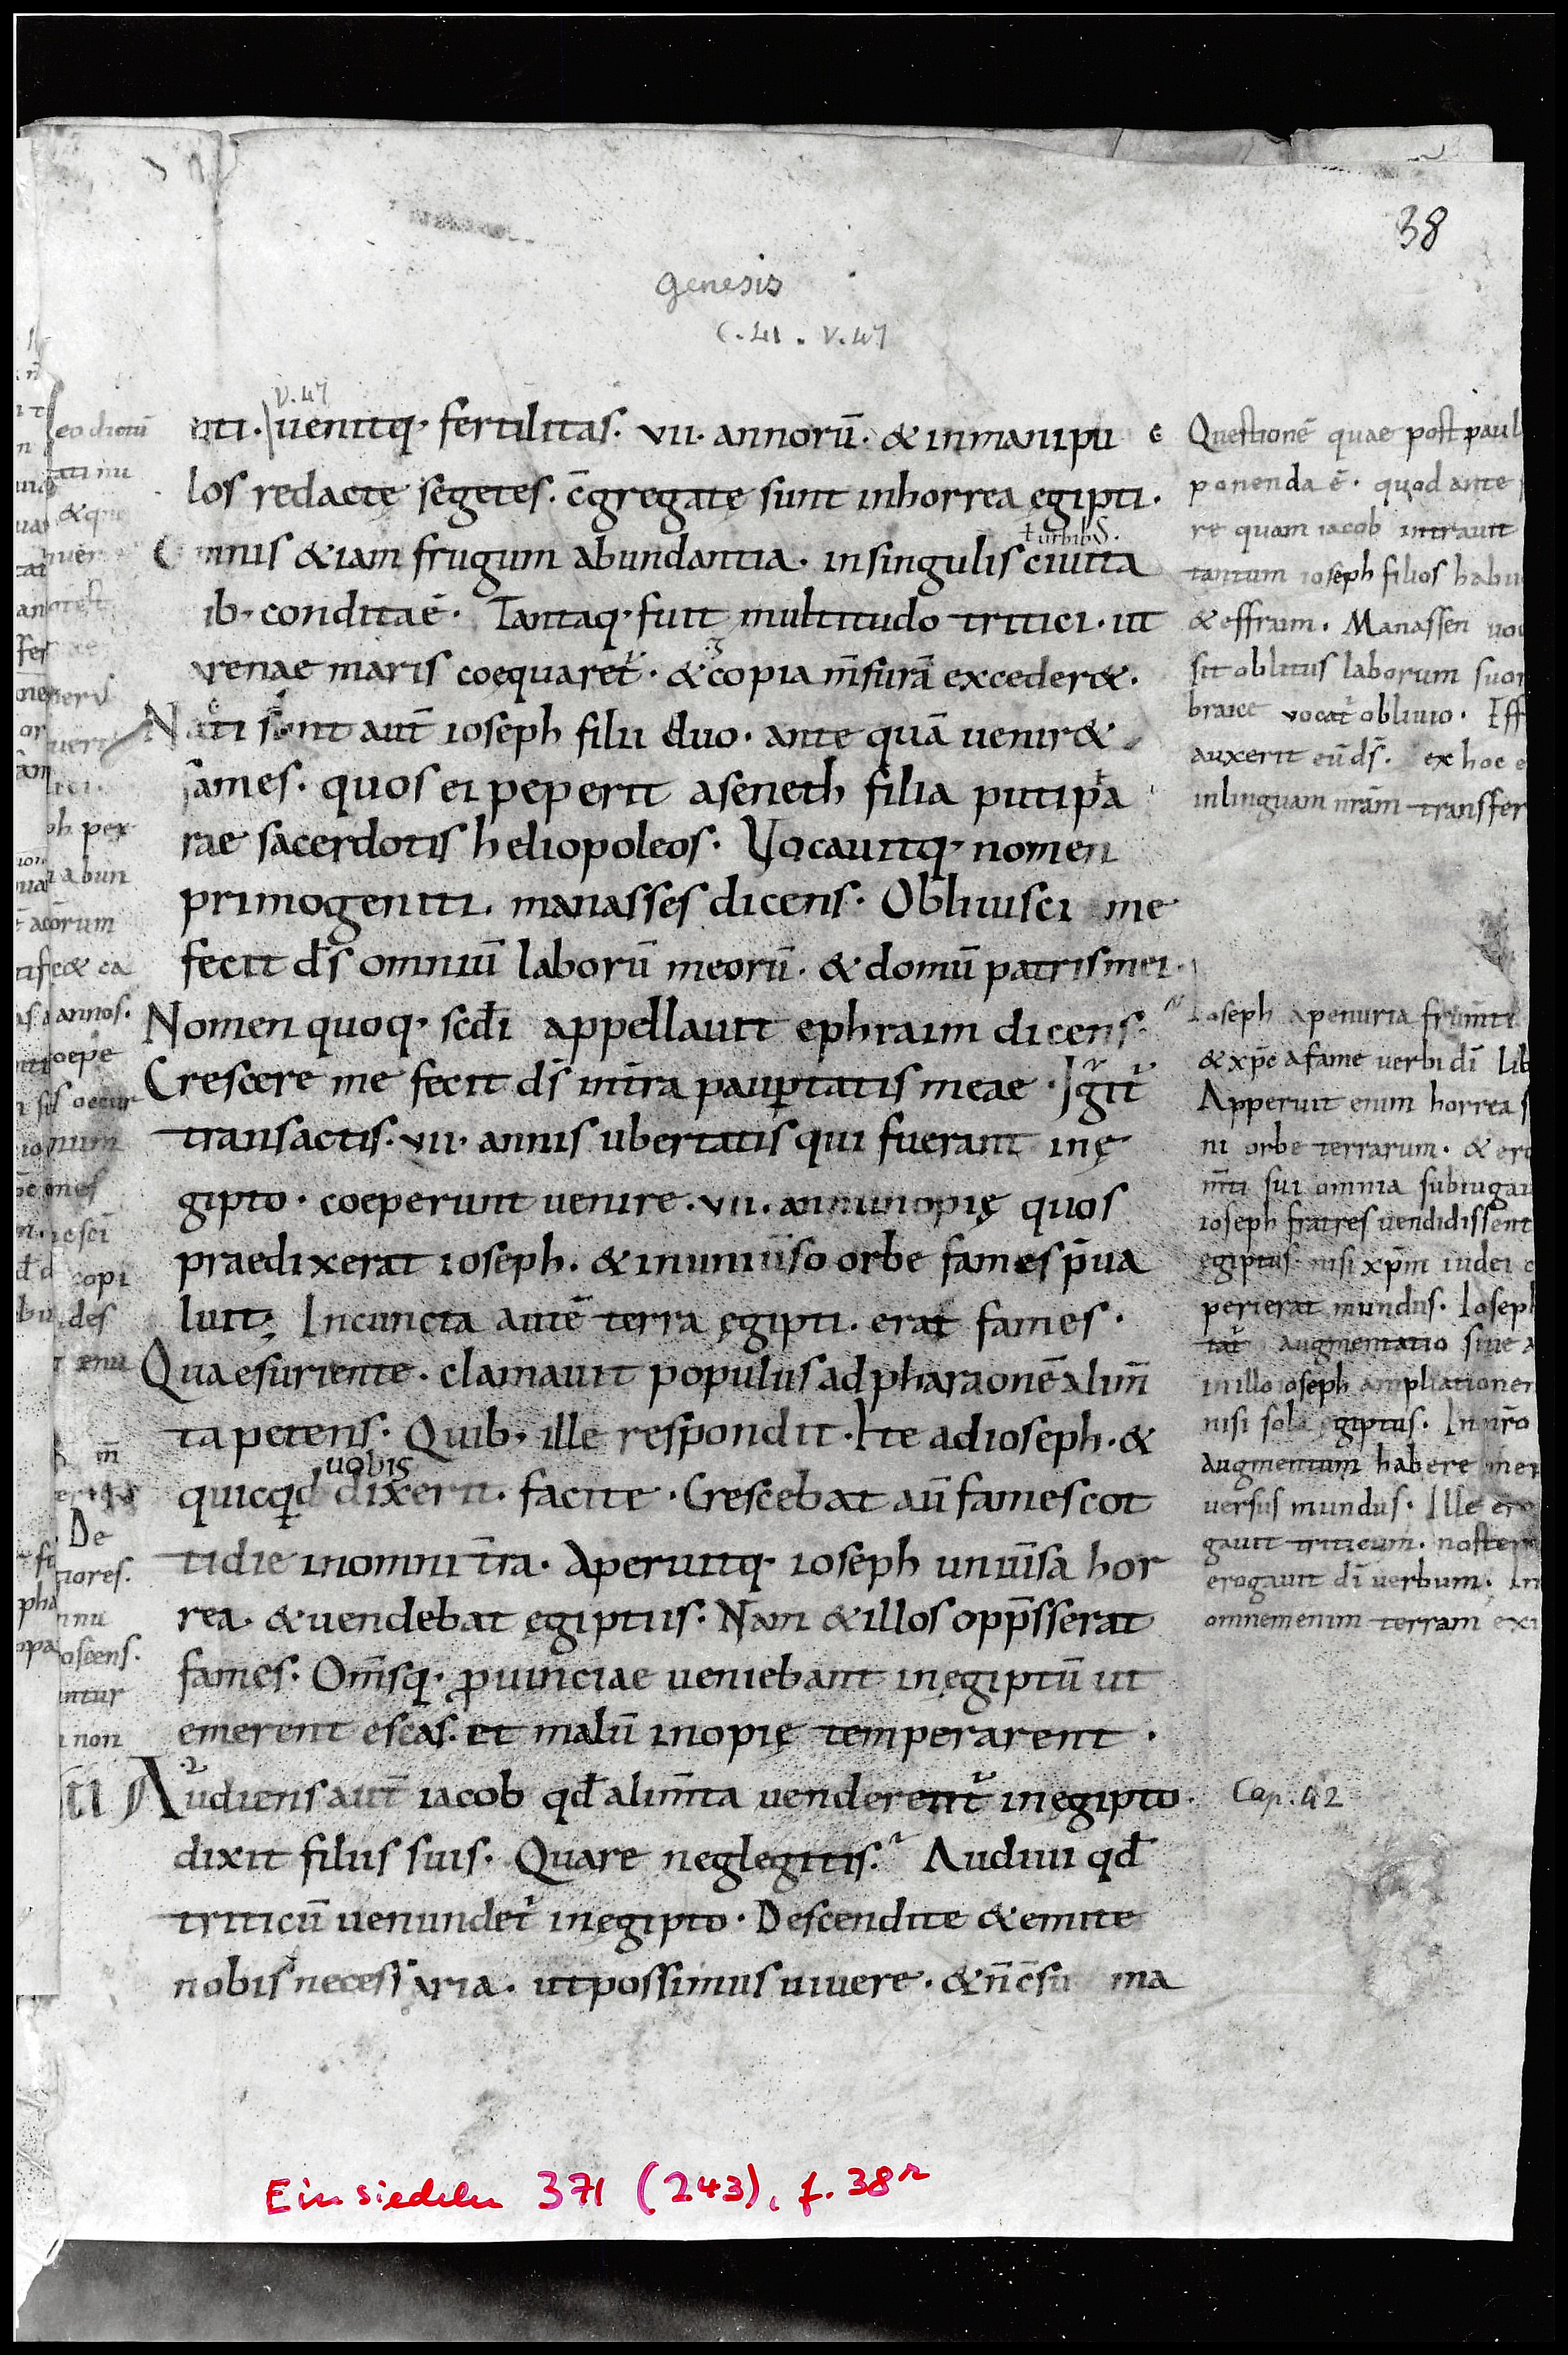 38
genesis
C. 41 . V. 47
V. 47
nti. uenitq· fertilitas· vii· annorū· & inmanipu
los redacte segetes· c̄gregate sunt inhorrea ęgipti·
ł urbib;
mnis &iam frugum abundantia· insingulis ciuita
ib· condita ē· Tantaq· fuit multitudo tritici· ut
renae maris coequaret᷑· & copia m̄surā exceder&·
Nati sunt aut̄ ioseph filii duo· ante quā uenir&
fames· quos ei peperit aseneth filia putipha
rae sacerdotis heliopoleos· Vocauitq· nomen
primogeniti· manasses dicens· Obliuisci me
fecit d̄s omniū laborū meorū· & domū patris mei·
Nomen quoq· scd̄i appellauit ephraim dicens·
Crescere me fecit d̄s in tr̄a paup̱tatis meae· Igit᷑
transactis· vii· annis ubertatis qui fuerant inę
gipto· coeperunt uenire· vii· anni inopię quos
praedixerat ioseph· & inuniūso orbe fames p̄ua
luit; Incuncta autē terra ęgipti· erat fames·
Qua esuriente· clamauit populus ad pharaonē alim̄
ta petens· Quib· ille respondit· Ite adioseph· &
uobis
quicqd dixerit· facite· Crescebat aū fames cot
tidie inomni t̄ra· Aperuitq· ioseph uniūsa hor
rea· & uendebat ęgiptiis· Nam & illos opp̄sserat
fames· Om̄sq· ꝓuinciae ueniebant inęgiptū ut
emerent escas· et malū inopię temperarent·
Audiens aut̄ iacob qd̄ alim̄ta uenderent᷑ inęgipto·
dixit filiis suis· Quare neglegitis· Audiui qd̄
triticū uenundet᷑ inęgipto· Descendite & emite
nobis necessaria· ut possimus uiuere· & n̄ c̄su ma
Questionē quae post paul
ponenda ē· quod ante
re quam iacob intrauit
tantum ioseph filios habu
& effraim· Manassen uoc
sit oblitus laborum suor
braice vocat᷑ obliuio· Eff
auxerit eū d̄s· ex hoc e
inlinguam nr̄am transfer
Ioseph apenuria frum̄ti
& xp̄c afame uerbi dī lib
Apperuit enim horrea s
ni orbe terrarum· & ero
m̄ti sui omnia subiugau
ioseph fratres uendidissent
ęgiptus· nisi xp̄m iudei c
perierat mundus· Ioseph
tat᷑ augmentatio siue a
inillo ioseph ampliationem
nisi sola ęgiptus· In nr̄o
augmentum habere mer
uersus mundus· Ille ero
gauit triticum· noster
erogauit dī uerbum· In
omnem enim terram exi
Cap. 42
eo dictū
ph pex
abun
orum
annos·
coepe
num
copi
des
De
tiores·
oscens·
ntur
non
Einsiedeln 371 (243), f. 38r